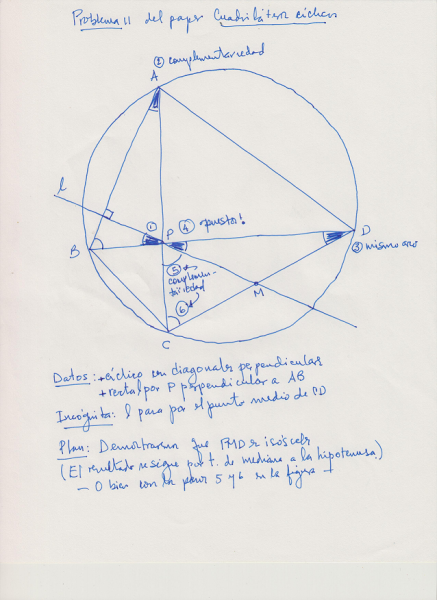 Problema 11 del paper Cuadriláteros cíclicos
② complementariedad
A
l
P
① ④ opuestos!
D
B
③ mismo arco
⑤
complemen-
tariedad
M
⑥
C
Datos: + cíclico con diagonales perpendiculares
+ recta l por P perpendicular a AB
Incógnita: l pasa por el punto medio de CD
Plan: Demostrar que PMD es isósceles
(El resultado se sigue por t. de mediana a la hipotenusa)
— O bien con la 5 y 6 en la figura —